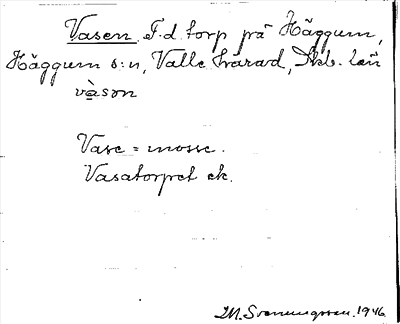 Vasen. F.d. torp på Häggum,
Häggum s:n, Valle härad, Skb. län
vàsən
Vase = mosse.
Vasatorpet ek.
M. Svenungsson. 1946